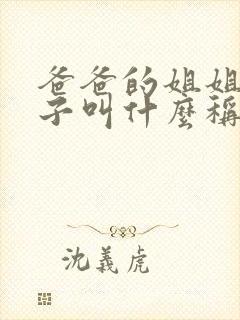 爸爸的姐姐
子叫什麼稱
沈義虎